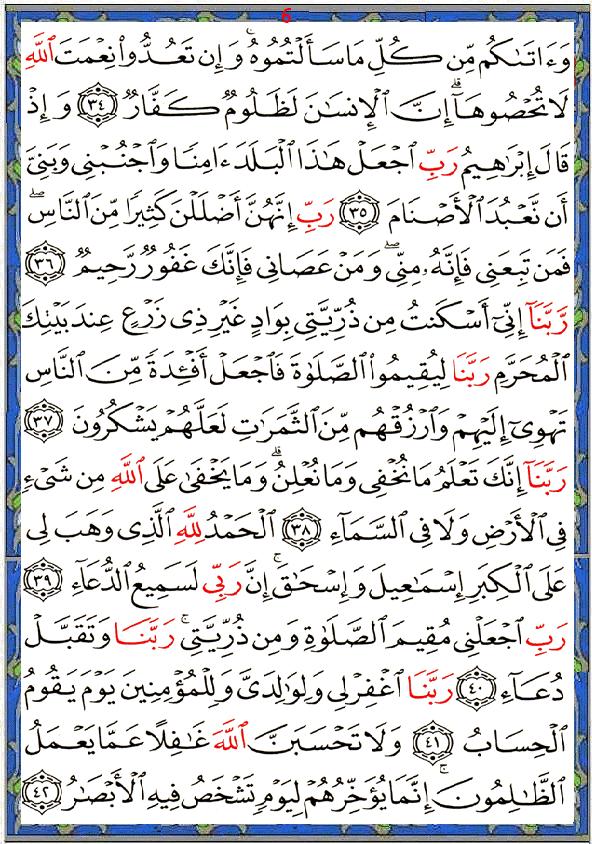 6
وَءَاتَىٰكُم مِّن كُلِّ مَا سَأَلْتُمُوهُ ۚ وَإِن تَعُدُّوا۟ نِعْمَتَ ٱللَّهِ
لَا تُحْصُوهَآ ۗ إِنَّ ٱلْإِنسَـٰنَ لَظَلُومٌ كَفَّارٌ ٣٤ وَإِذْ
قَالَ إِبْرَٰهِيمُ رَبِّ ٱجْعَلْ هَـٰذَا ٱلْبَلَدَ ءَامِنًا وَٱجْنُبْنِى وَبَنِىَّ
أَن نَّعْبُدَ ٱلْأَصْنَامَ ٣٥ رَبِّ إِنَّهُنَّ أَضْلَلْنَ كَثِيرًا مِّنَ ٱلنَّاسِ ۖ
فَمَن تَبِعَنِى فَإِنَّهُۥ مِنِّى ۖ وَمَنْ عَصَانِى فَإِنَّكَ غَفُورٌ رَّحِيمٌ ٣٦
رَّبَّنَآ إِنِّىٓ أَسْكَنتُ مِن ذُرِّيَّتِى بِوَادٍ غَيْرِ ذِى زَرْعٍ عِندَ بَيْتِكَ
ٱلْمُحَرَّمِ رَبَّنَا لِيُقِيمُوا۟ ٱلصَّلَوٰةَ فَٱجْعَلْ أَفْـِٔدَةً مِّنَ ٱلنَّاسِ
تَهْوِىٓ إِلَيْهِمْ وَٱرْزُقْهُم مِّنَ ٱلثَّمَرَٰتِ لَعَلَّهُمْ يَشْكُرُونَ ٣٧
رَبَّنَآ إِنَّكَ تَعْلَمُ مَا نُخْفِى وَمَا نُعْلِنُ ۗ وَمَا يَخْفَىٰ عَلَى ٱللَّهِ مِن شَىْءٍ
فِى ٱلْأَرْضِ وَلَا فِى ٱلسَّمَآءِ ٣٨ ٱلْحَمْدُ لِلَّهِ ٱلَّذِى وَهَبَ لِى
عَلَى ٱلْكِبَرِ إِسْمَـٰعِيلَ وَإِسْحَـٰقَ ۚ إِنَّ رَبِّى لَسَمِيعُ ٱلدُّعَآءِ ٣٩
رَبِّ ٱجْعَلْنِى مُقِيمَ ٱلصَّلَوٰةِ وَمِن ذُرِّيَّتِى ۚ رَبَّنَا وَتَقَبَّلْ
دُعَآءِ ٤٠ رَبَّنَا ٱغْفِرْ لِى وَلِوَٰلِدَىَّ وَلِلْمُؤْمِنِينَ يَوْمَ يَقُومُ
ٱلْحِسَابُ ٤١ وَلَا تَحْسَبَنَّ ٱللَّهَ غَـٰفِلًا عَمَّا يَعْمَلُ
ٱلظَّـٰلِمُونَ ۚ إِنَّمَا يُؤَخِّرُهُمْ لِيَوْمٍ تَشْخَصُ فِيهِ ٱلْأَبْصَـٰرُ ٤٢